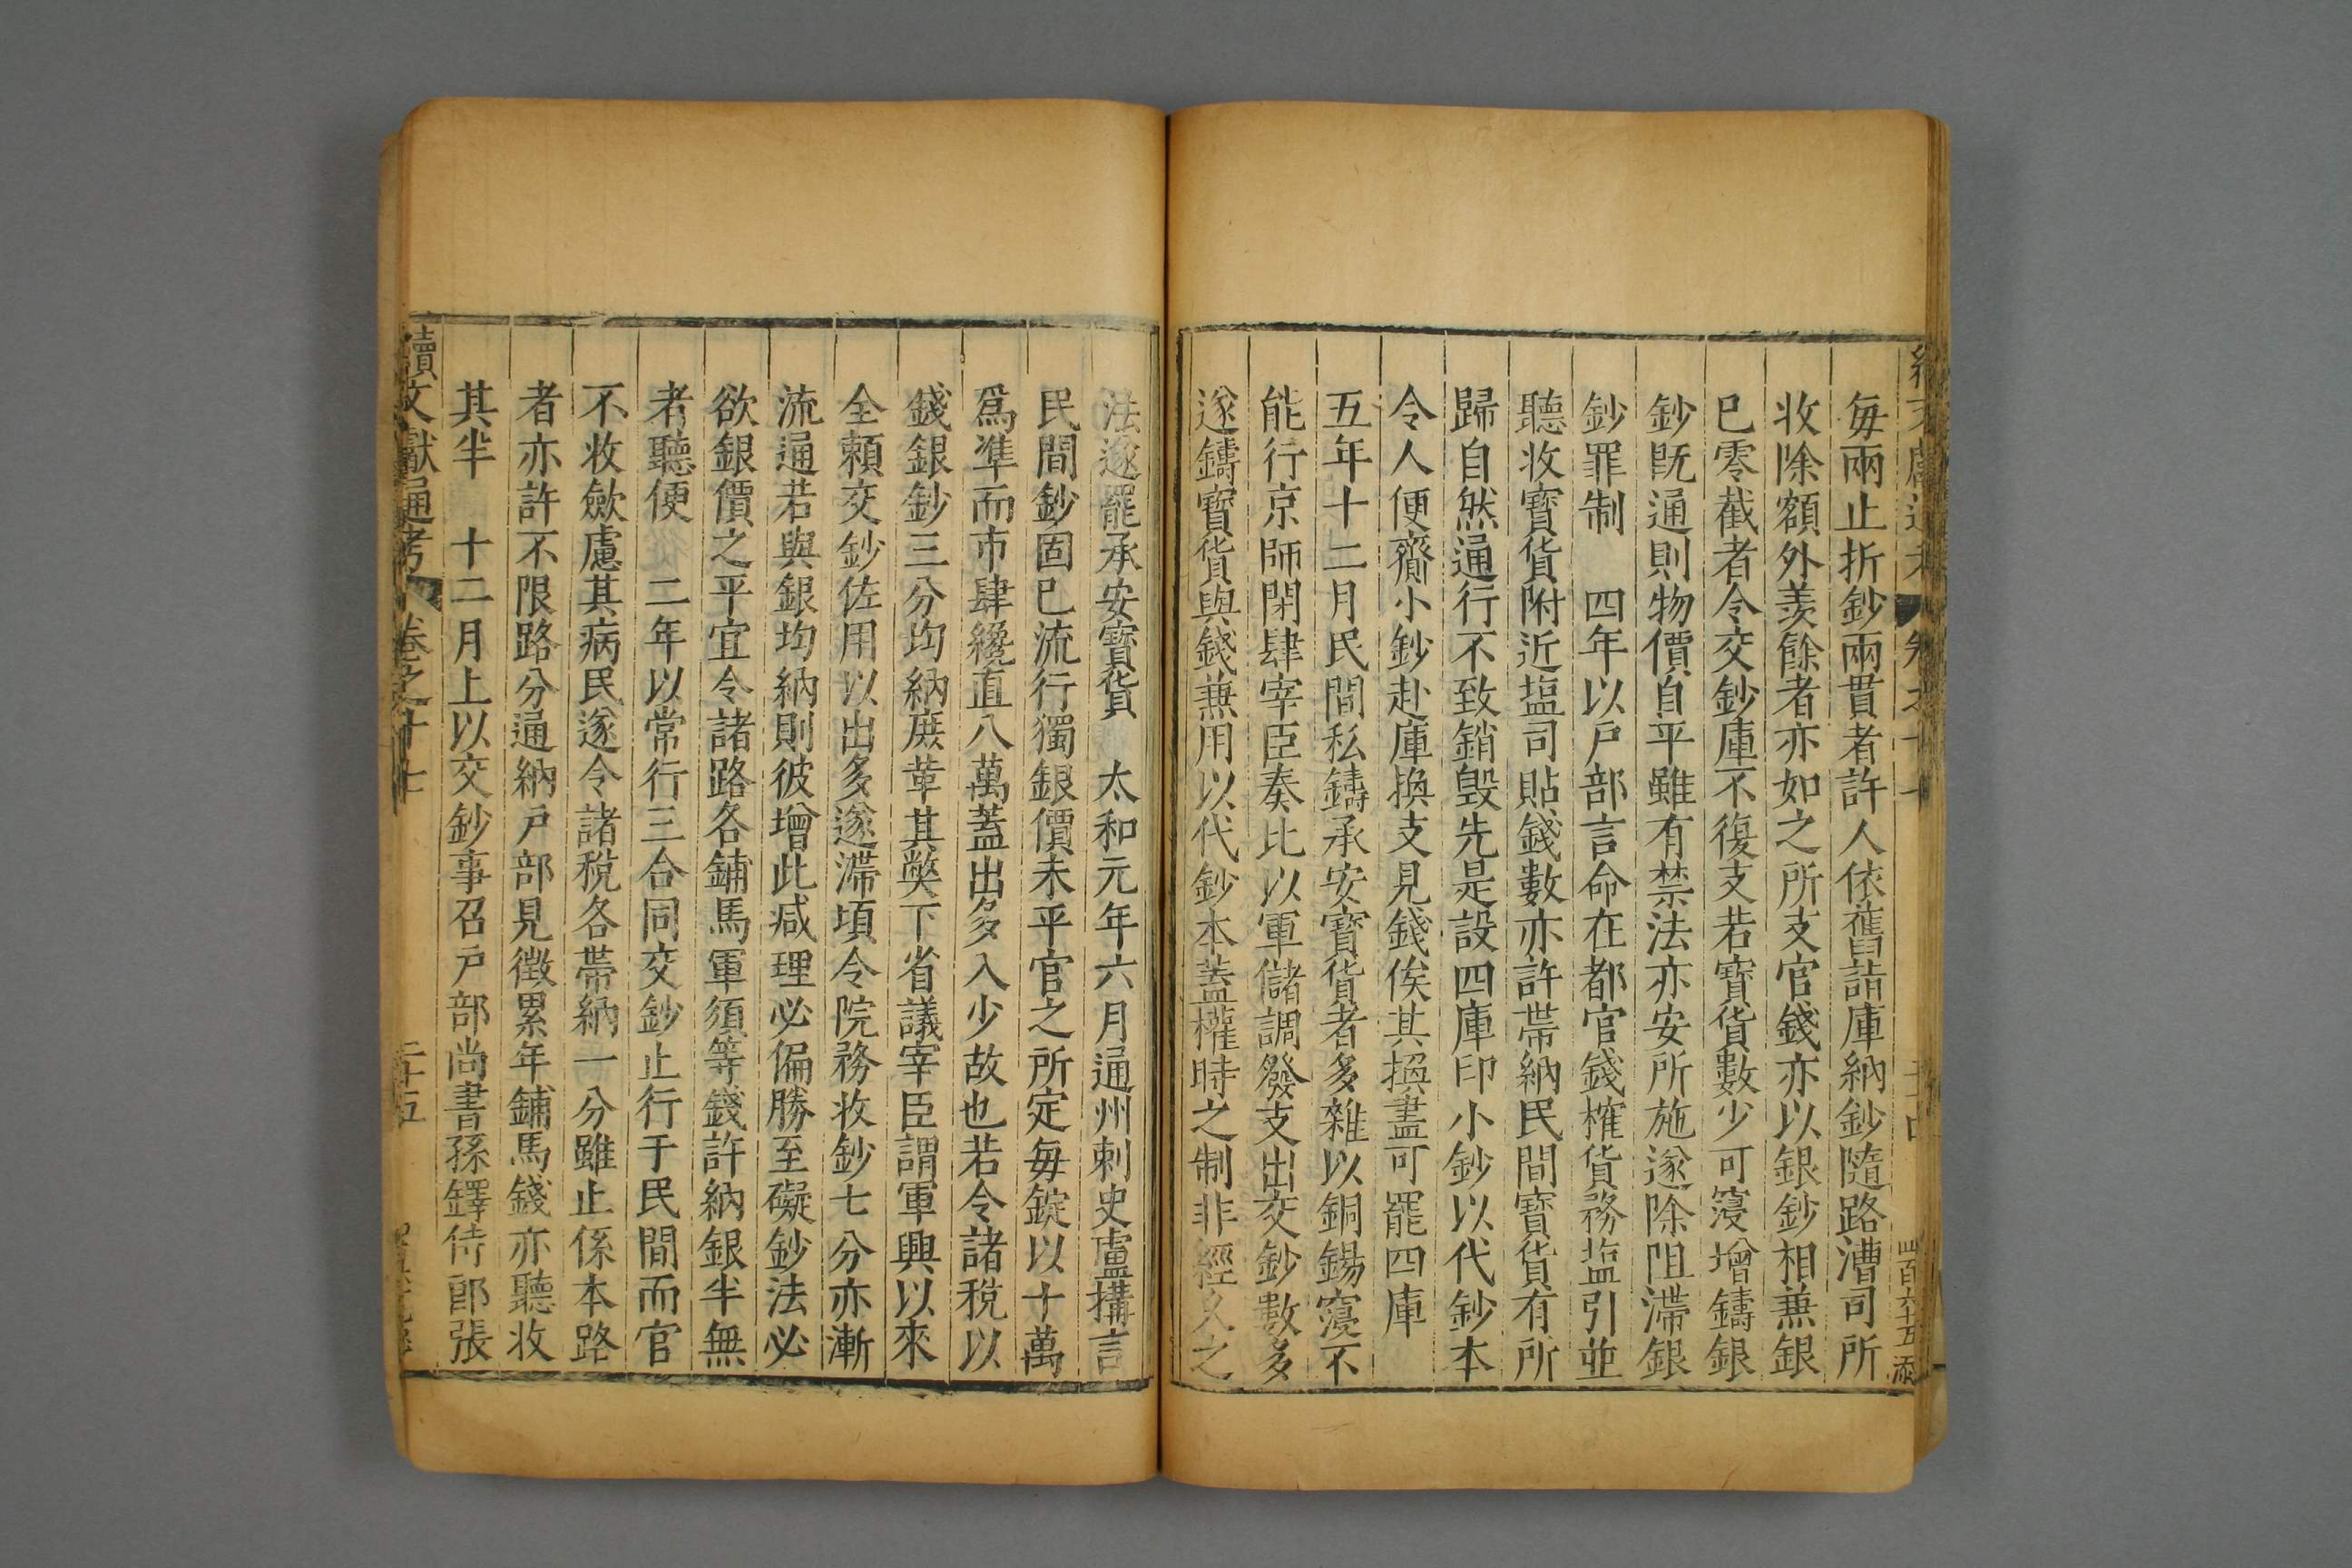 每兩止折鈔兩貫者許人依舊詣庫納鈔隨路漕司所
收除額外羨餘者亦如之所支官錢亦以銀鈔相兼銀
已零截者令交鈔庫不復支若寶貨數少可寖增鑄銀
鈔既通則物價自平雖有禁法亦安所施遂除阻滯銀
鈔罪制　四年以戸部言命在都官錢榷貨務塩引並
聽收寶貨附近塩司貼錢數亦許帶納民間寶貨有所
歸自然通行不致銷毀先是設四庫印小鈔以代鈔本
令人便齎小鈔赴庫換支見錢俟其換盡可罷四庫
五年十二月民間私鑄承安寶貨者多雜以銅錫寖不
能行京師閉肆宰臣奏比以軍儲調發支出交鈔數多
遂鑄寶貨與錢兼用以代鈔本蓋權時之制非經久之
法遂罷承安寶貨　太和元年六月通州刺史盧構言
民間鈔固已流行獨銀價未平官之所定每錠以十萬
爲準而市肆纔直八萬蓋出多入少故也若令諸稅以
錢銀鈔三分均納庶革其弊下省議宰臣謂軍興以來
全賴交鈔佐用以出多遂滯頃令院務收鈔七分亦漸
流通若與銀均納則彼增此減理必偏勝至礙鈔法必
欲銀價之平宜令諸路各鋪馬軍須等錢許納銀半無
者聽便　二年以常行三合同交鈔止行于民間而官
不收斂慮其病民遂令諸稅各帶納一分雖止係本路
者亦許不限路分通納戸部見徵累年鋪馬錢亦聽收
其半　十二月上以交鈔事召戸部尚書孫鐸侍郎張
續文獻通考　卷之十七　二十五